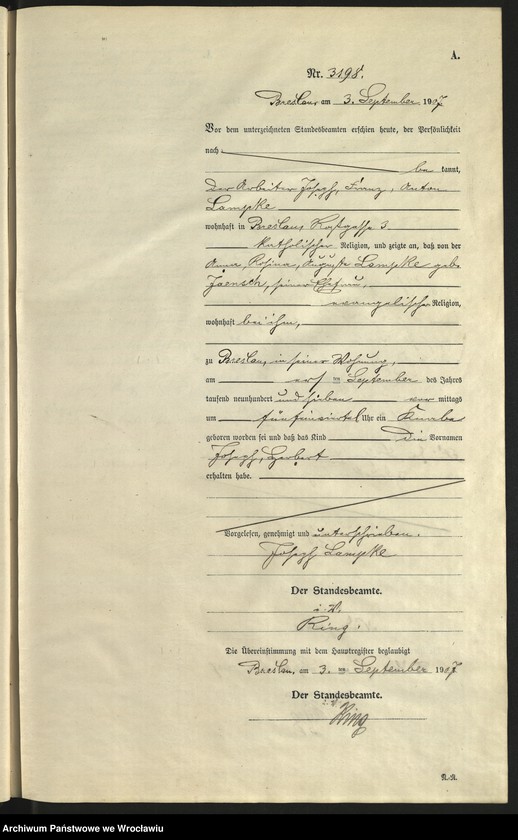 A.
Nr. 3198.
Breslau am 3. September 1907
Vor dem unterzeichneten Standesbeamten erschien heute, der Persönlichkeit
nach
be kannt,
der Arbeiter Joseph, Franz, Anton
Lampke
wohnhaft in Breslau, 3
katholischer Religion, und zeigte an, daß von der
Anna, Rosina, Auguste Lampke geb.
Jaensch, seiner Ehefrau,
evangelischer Religion,
wohnhaft bei ihm,
zu Breslau, in seiner Wohnung,
am ersten September des Jahres
tausend neunhundert und sieben vor mittags
um fünfeinviertel Uhr ein Knabe
geboren worden sei und daß das Kind die Vornamen
Joseph, Herbert
erhalten habe.
Vorgelesen, genehmigt und unterschrieben.
Joseph Lampke
Der Standesbeamte.
i. V.
Ring.
Die Übereinstimmung mit dem Hauptregister beglaubigt
Breslau, am 3. ten September 1907
Der Standesbeamte.
i. V.
Ring
Archiwum Państwowe we Wrocławiu